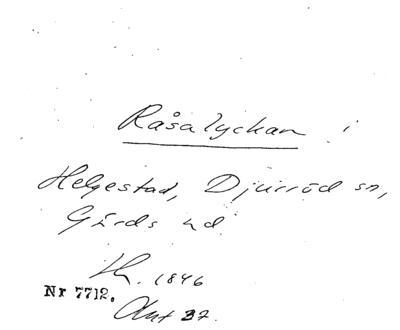 Råsalyckan i
Helgestad, Djurröd sn,
Gärds hd
Lh. 1846
Nr 7712.
Akt 37.